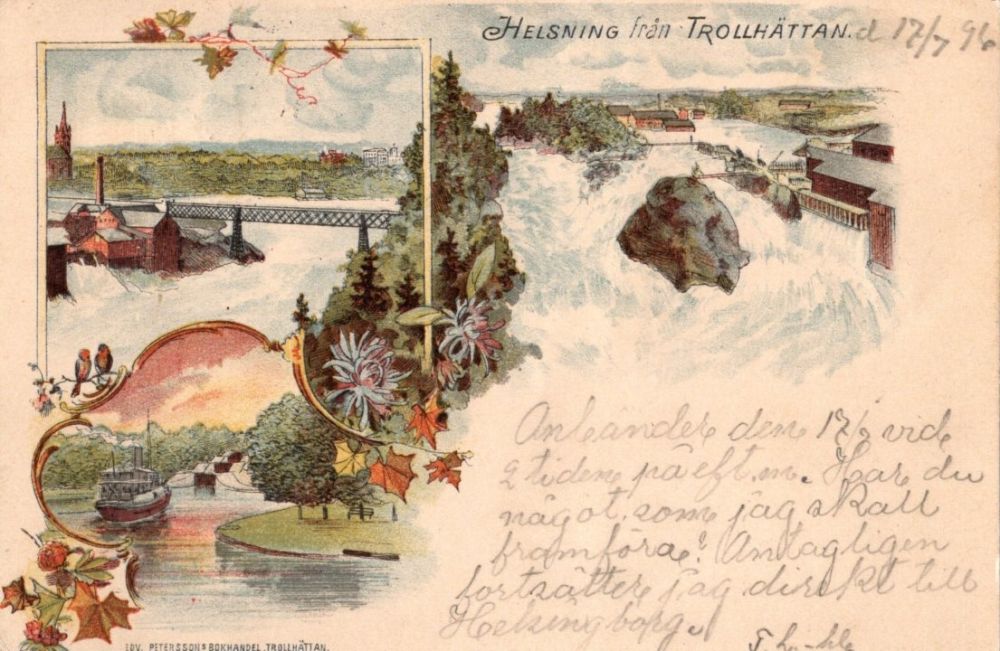 HELSNING från TROLLHÄTTAN.
d 17/7 96
Anländer den 17/7 vid
2 tiden på eft.m. Har du
något som jag skall
framföra? Antagligen
fortsätter jag direkt till
Helsingborg.
EDV. PETERSSONS BOKHANDEL, TROLLHÄTTAN.